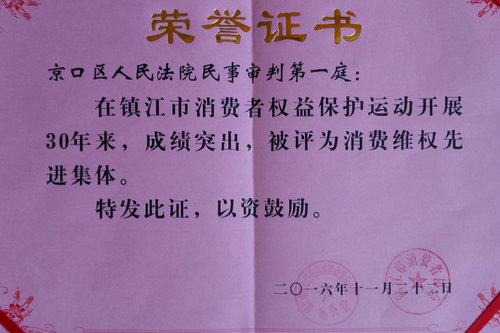 荣誉证书
京口区人民法院民事审判第一庭：
在镇江市消费者权益保护运动开展
30年来，成绩突出，被评为消费维权先
进集体。
特发此证，以资鼓励。
二〇一六年十一月二十二日